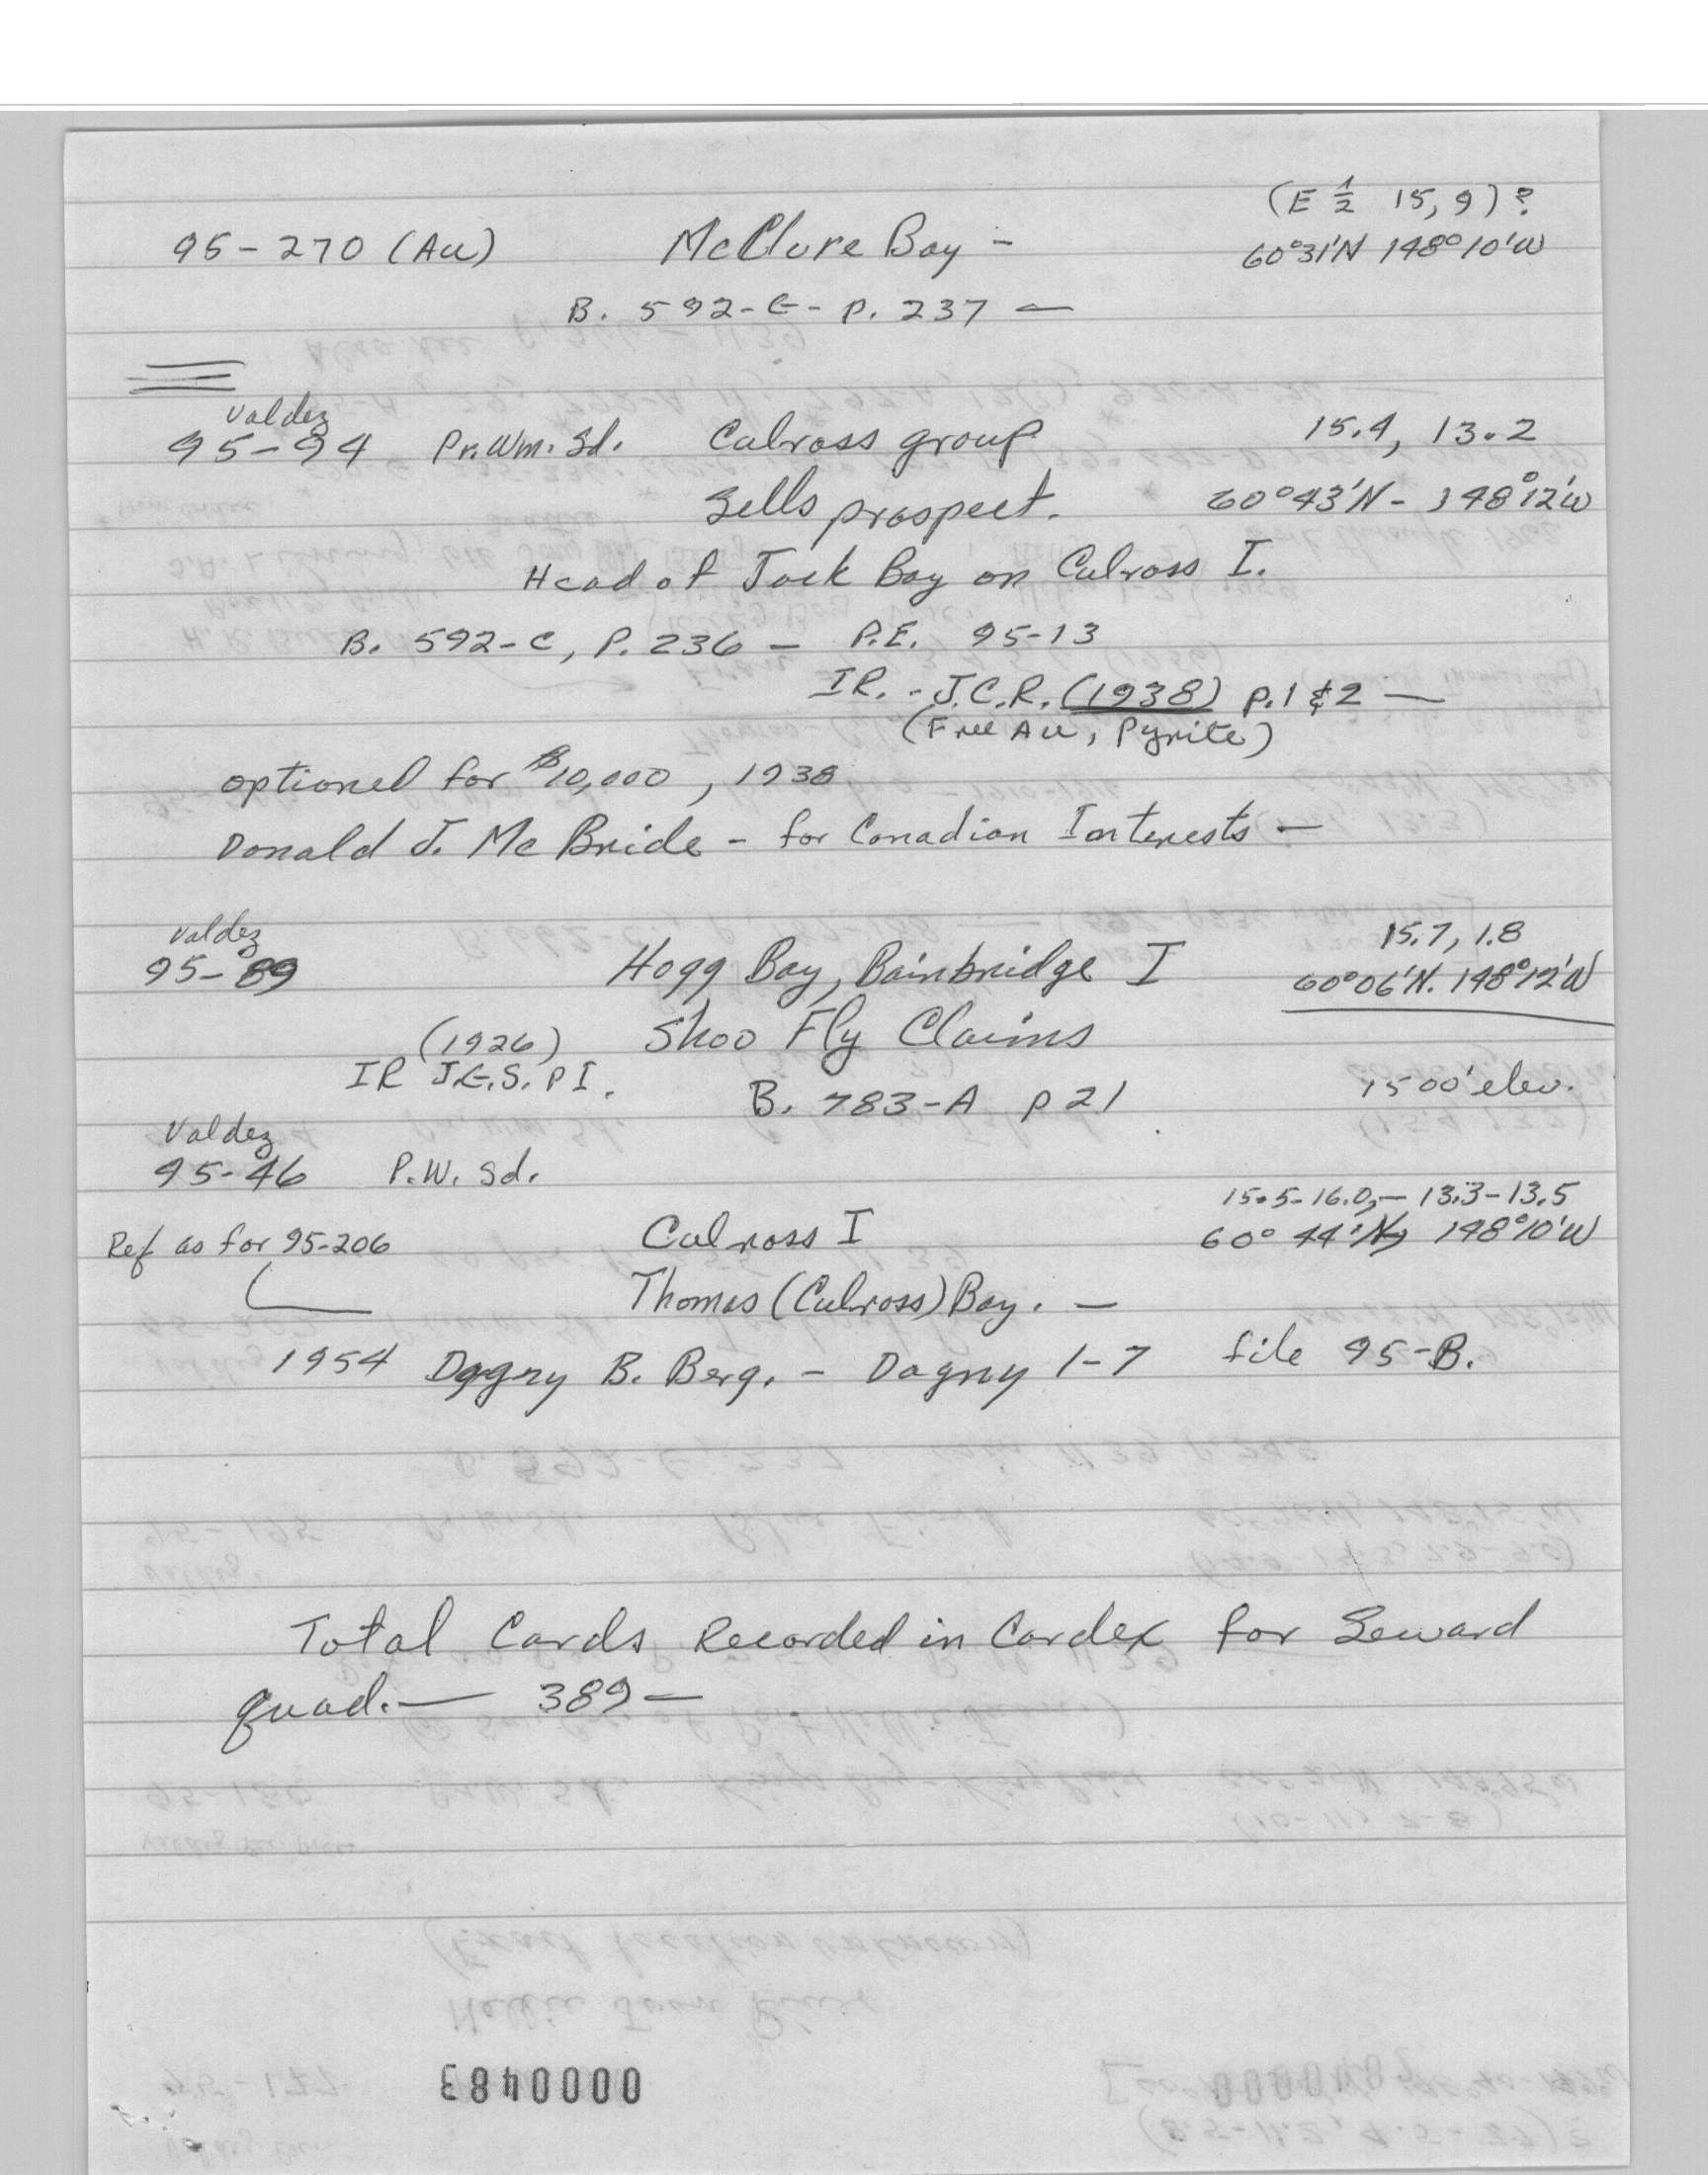 (E ½ 15, 9)?
95-270 (Au) McClure Bay - 60°31'N 148°10'W
B. 592-C- P. 237 —
Valdez
95-94 Pr. Wm. Sd. Culross group 15.4, 13.2
Sells prospect. 60°43'N - 148°12'W
Head of Jack Bay on Culross I.
B. 592-C, P. 236 — P.E. 95-13
IR. - J.C.R. (1938) p.1 & 2 —
(Free Au, Pyrite)
optioned for $10,000, 1938
Donald J. McBride - for Canadian Interests —
Valdez 15.7, 1.8
95-89 Hogg Bay, Bainbridge I 60°06'N. 148°12'W
(1926) Shoo Fly Claims
IR J.G.S. P I. 1500' elev.
B. 783-A p 21
Valdez
95-46 P.W. Sd. 15.5-16.0,— 13.3-13.5
Ref as for 95-206 Culross I 60° 44'N, 148°10'W
Thomas (Culross) Bay. —
1954 Dagny B. Berg. - Dagny 1-7 file 95-B.
Total Cards Recorded in Cardex for Seward
quad. — 389 —
0000483